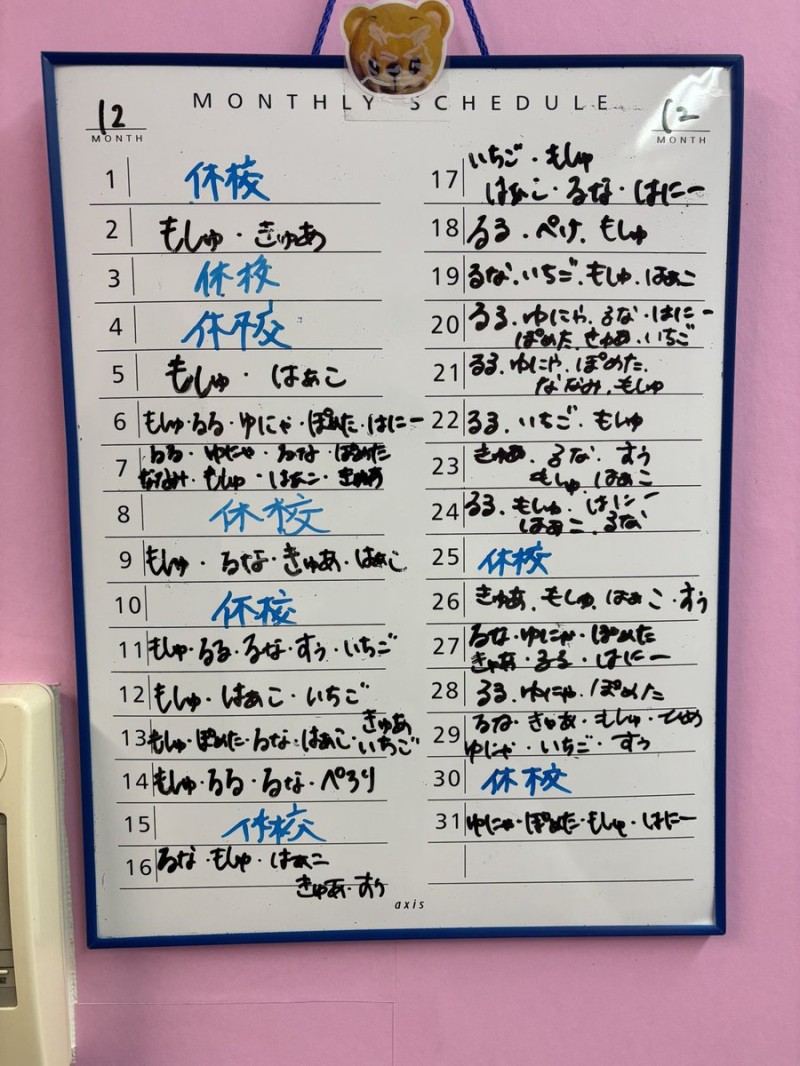 MONTHLY SCHEDULE
12
MONTH
12
MONTH
1 休校
2 もしゅ・きゅあ
3 休校
4 休校
5 もしゅ・はぁこ
6 もしゅ・るる・ゆにゃ・ぽめた・はにー
7 るる・ゆにゃ・るな・ぽめた
ななみ・もしゅ・はぁこ・きゅあ
8 休校
9 もしゅ・るな・きゅあ・はぁこ
10 休校
11 もしゅ・るる・るな・すぅ・いちご
12 もしゅ・はぁこ・いちご
13 もしゅ・ぽめた・るな・はぁこ・きゅあ
いちご
14 もしゅ・るる・るな・ぺろり
15 休校
16 るな・もしゅ・はぁこ
きゅあ・すぅ
17 いちご・もしゅ
はぁこ・るな・はにー
18 るる・ぺけ・もしゅ
19 るな・いちご・もしゅ・はぁこ
20 るる・ゆにゃ・るな・はにー
ぽめた・きゅあ・いちご
21 るる・ゆにゃ・ぽめた・
ななみ・もしゅ
22 るる・いちご・もしゅ
23 きゅあ・るな・すぅ
もしゅ・はぁこ
24 るる・もしゅ・はにー
はぁこ・るな
25 休校
26 きゅあ・もしゅ・はぁこ・すぅ
27 るな・ゆにゃ・ぽめた
きゅあ・るる・はにー
28 るる・ゆにゃ・ぽめた
29 るな・きゅあ・もしゅ・
ゆにゃ・いちご・すぅ
30 休校
31 ゆにゃ・ぽめた・もしゅ・はにー
axis